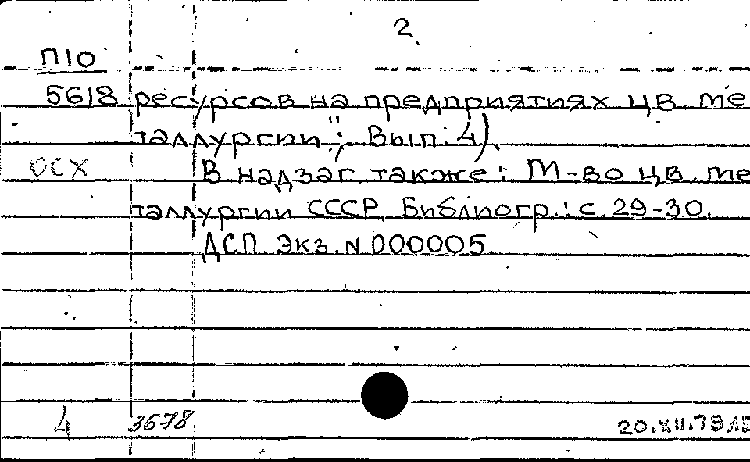 2
П10
5618 ресурсов на предприятиях цв ме
таллургии"; Вып. 4).
ОСХ В надзаг. также: М-во цв. ме
таллургии СССР. Библиогр.: с. 29-30.
ДСП. Экз. N 000005
4 3678 20.XII.79